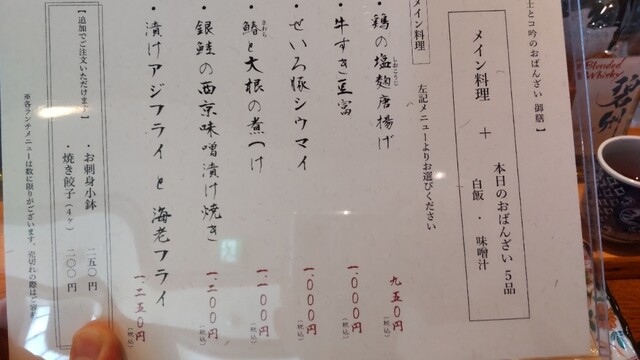 士とコ吟のおばんざい 御膳】
メイン料理 + 本日のおばんざい5品
白飯・味噌汁
メイン料理
左記メニューよりお選びください
・鶏の塩麹唐揚げ 九五〇円
しおこうじ
・牛すき豆富 一、〇〇〇円(税込)
・せいろ豚シウマイ 一、〇〇〇円(税込)
・鰆と大根の煮つけ 一、一〇〇円(税込)
さわら
・銀鮭の西京味噌漬け焼き 一、二〇〇円(税込)
・漬けアジフライと海老フライ 一、二五〇円(税込)
【追加でご注文いただけます】
・お刺身小鉢 二五〇円
・焼き餃子(4ヶ) 二〇〇円
※各ランチメニューは数に限りがございます。売切れの際はご容
Blended
Whisky